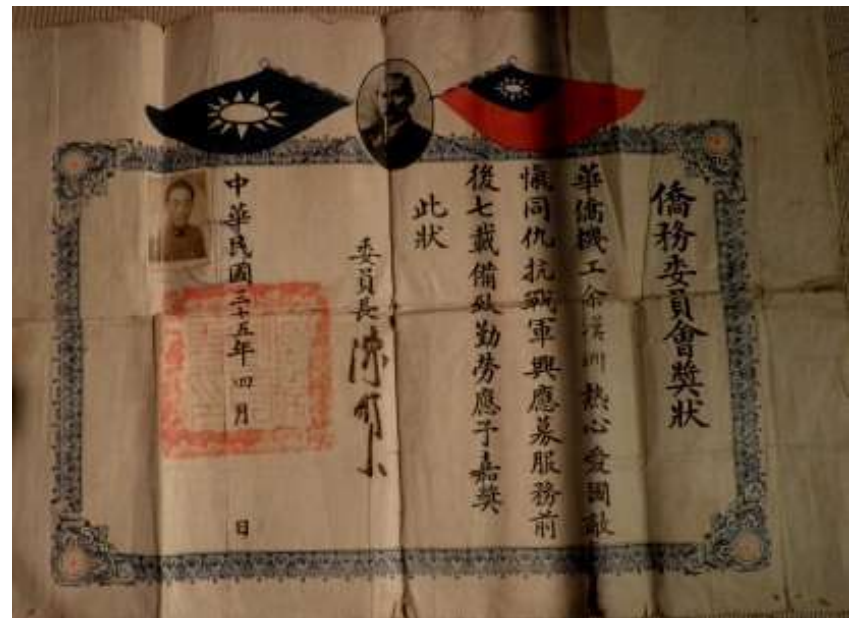 僑務委員會獎狀
華僑機工余漢洲熱心愛國敵
愾同仇抗戰軍興應募服務前
後七載備致勤勞應予嘉獎
此狀
委員長陳樹人
中華民國三十五年四月 日